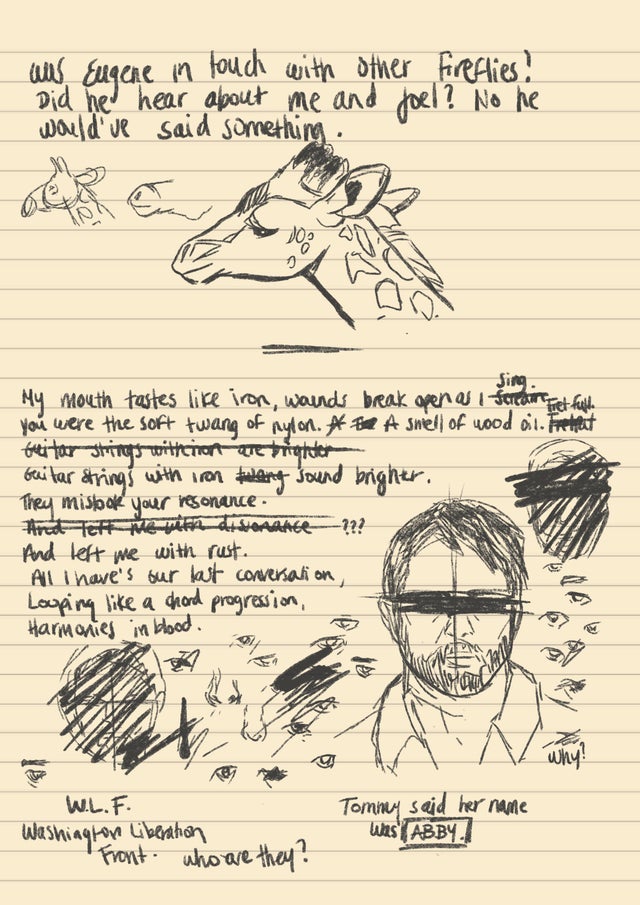 was Eugene in touch with other Fireflies?
Did he hear about me and Joel? No he
would've said something.
My mouth tastes like iron, wounds break open as I scream sing.
you were the soft twang of nylon. A smell of wood oil. Fret full.
Guitar strings with iron are brighter
Guitar strings with iron twang sound brighter.
They mistook your resonance.
And left me with dissonance ???
And left me with rust.
All I have's our last conversation,
Looping like a chord progression,
Harmonies in blood.
why?
W.L.F.
Washington Liberation
Front. who are they?
Tommy said her name
was ABBY.